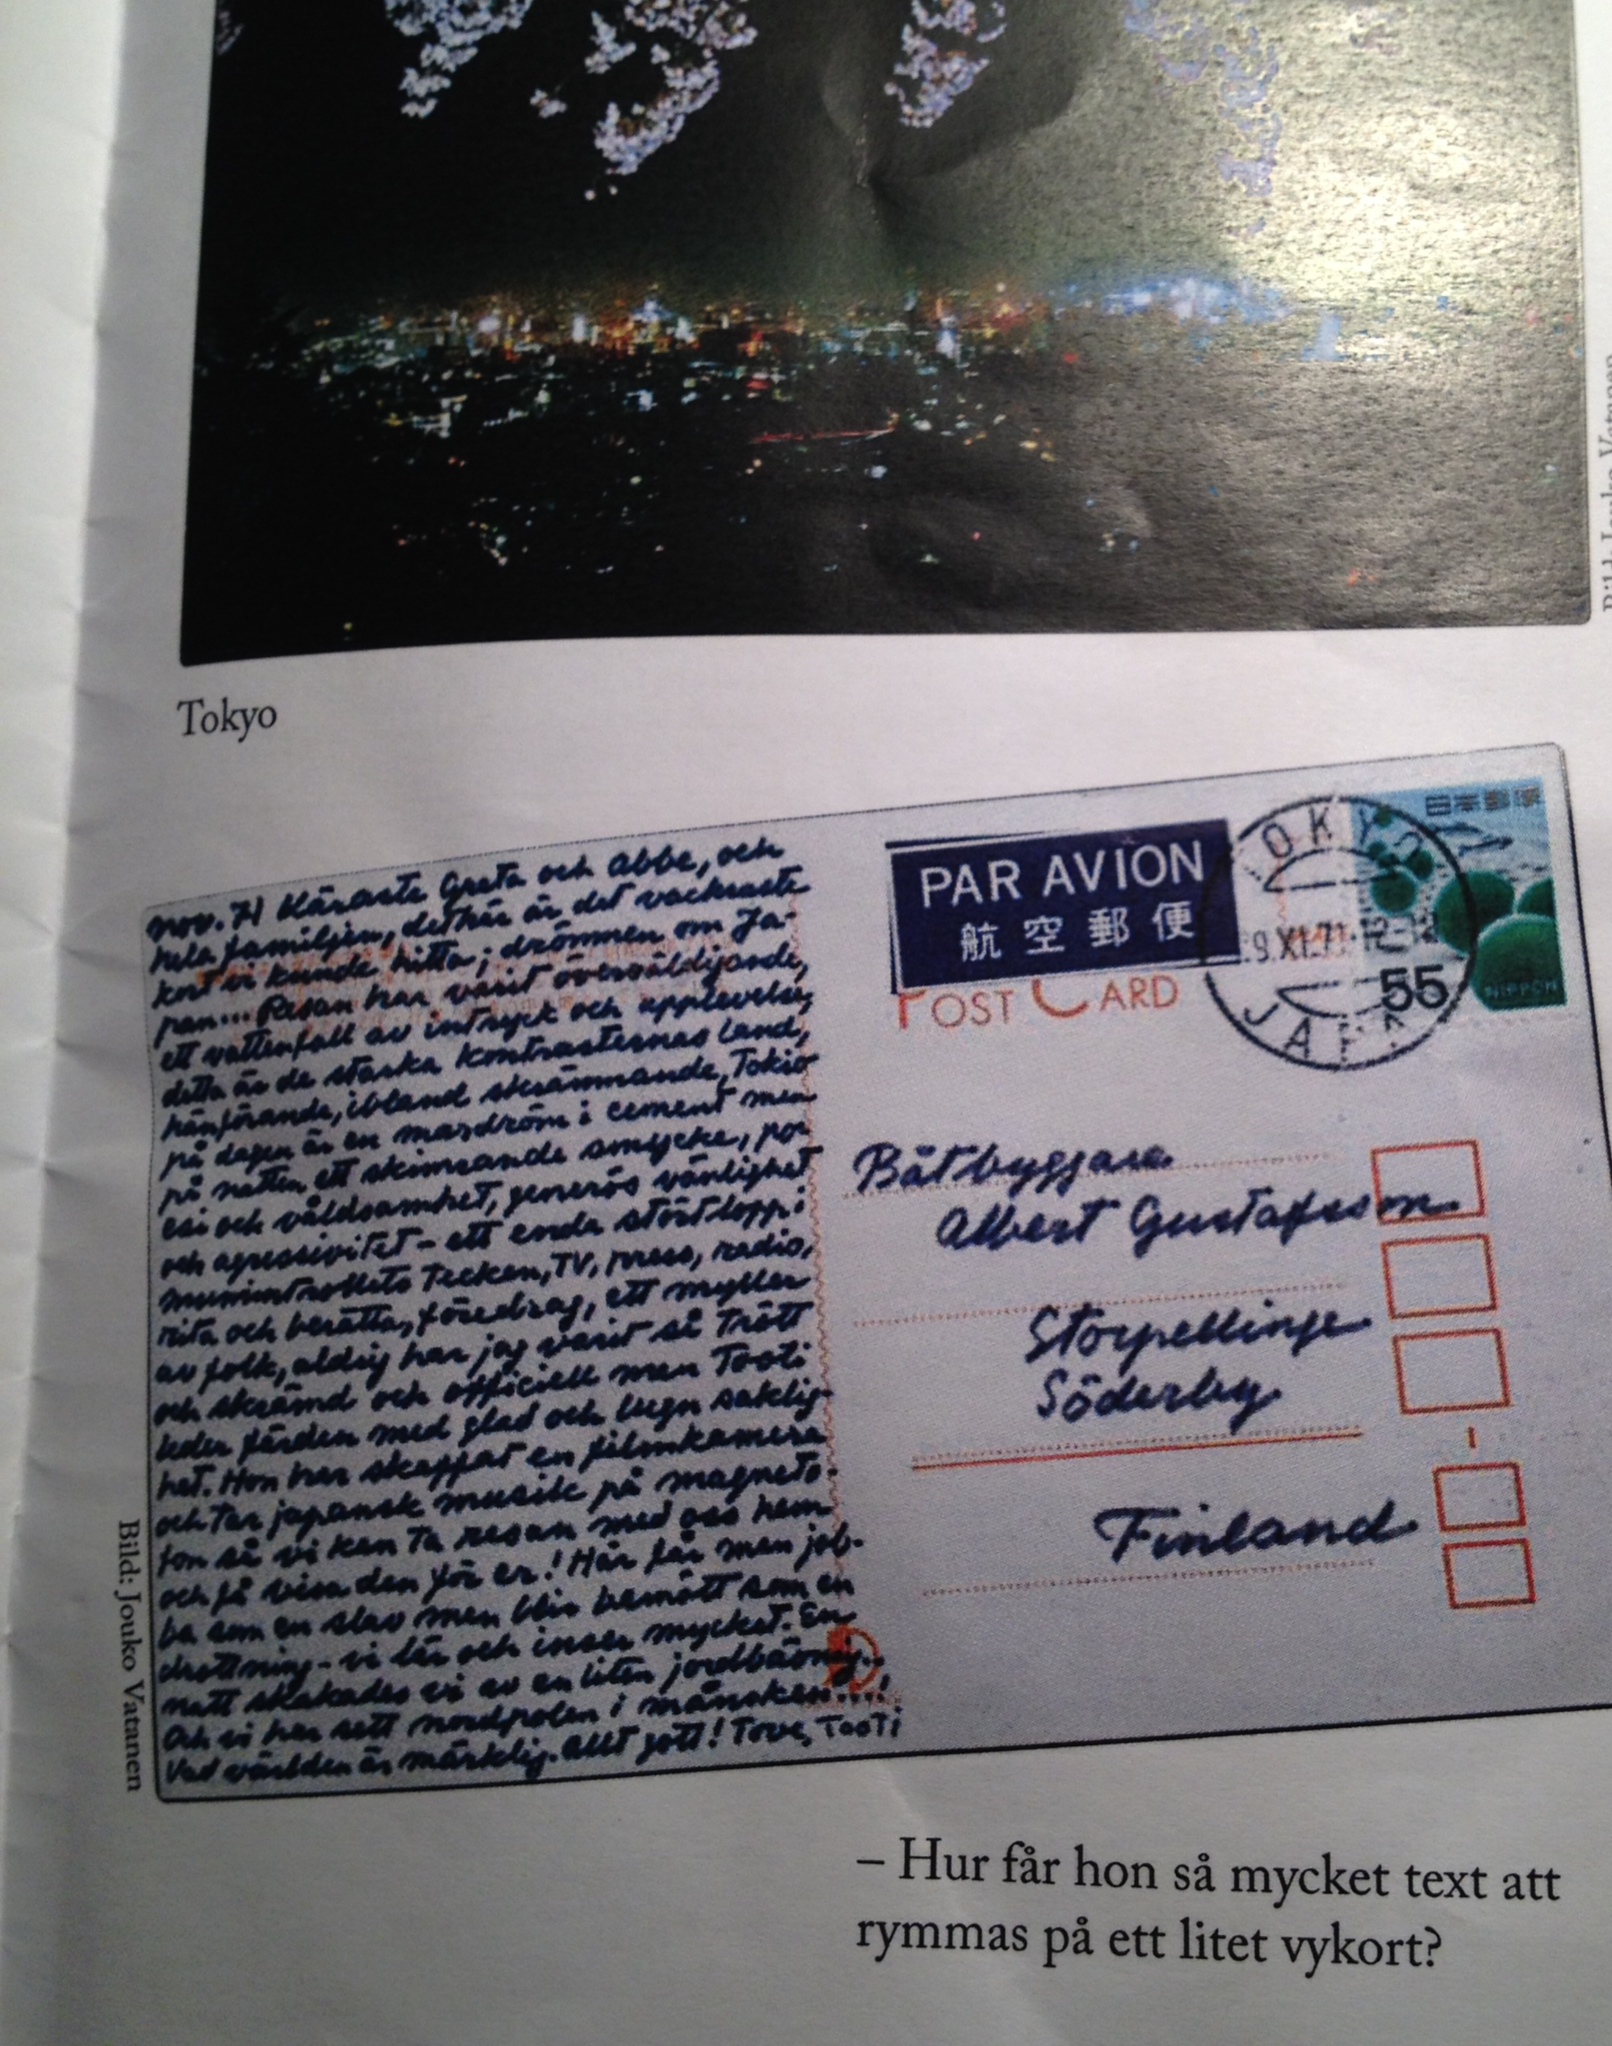 Tokyo
nov. 71 Käraste Greta och Abbe, och
hela familjen, det här är det vackraste
kort vi kunde hitta; drömmen om Ja-
pan... Resan har varit överväldigande,
ett vattenfall av intryck och upplevelse,
detta är de starka kontrasternas land,
hänförande, ibland skrämmande, Tokio
på dagen är en mardröm i cement men
på natten ett skimrande smycke, poe-
esi och våldsamhet, generös vänlighet
och agressivitet - ett enda störtlopp i
mumintrollets Tecken, TV, press, radio,
rita och berätta, föredrag, ett myller
av folk, aldrig har jag varit så trött
och skrämd och officiell men Tooti
leder färden med glad och lugn saklig-
het. Hon har skaffat en filmkamera
och tar japansk musik på magneto-
fon så vi kan ta resan med oss hem
och få visa den för er! Här får man job-
ba som en slav men blir bemött som en
drottning - vi lär och inser mycket. En
natt skakades vi av en liten jordbävning..
Och vi har sett nordpolen i månsken...,
Vad världen är märklig. Allt gott! Tove, Tooti
PAR AVION
航空郵便
POST CARD
TOKYO
9.XI.71.12-
JAPA
日本郵便
55
NIPPON
Båtbyggare
Albert Gustafsson
Storpellinge
Söderby
Finland
Bild: Jouko Vatanen
– Hur får hon så mycket text att
rymmas på ett litet vykort?